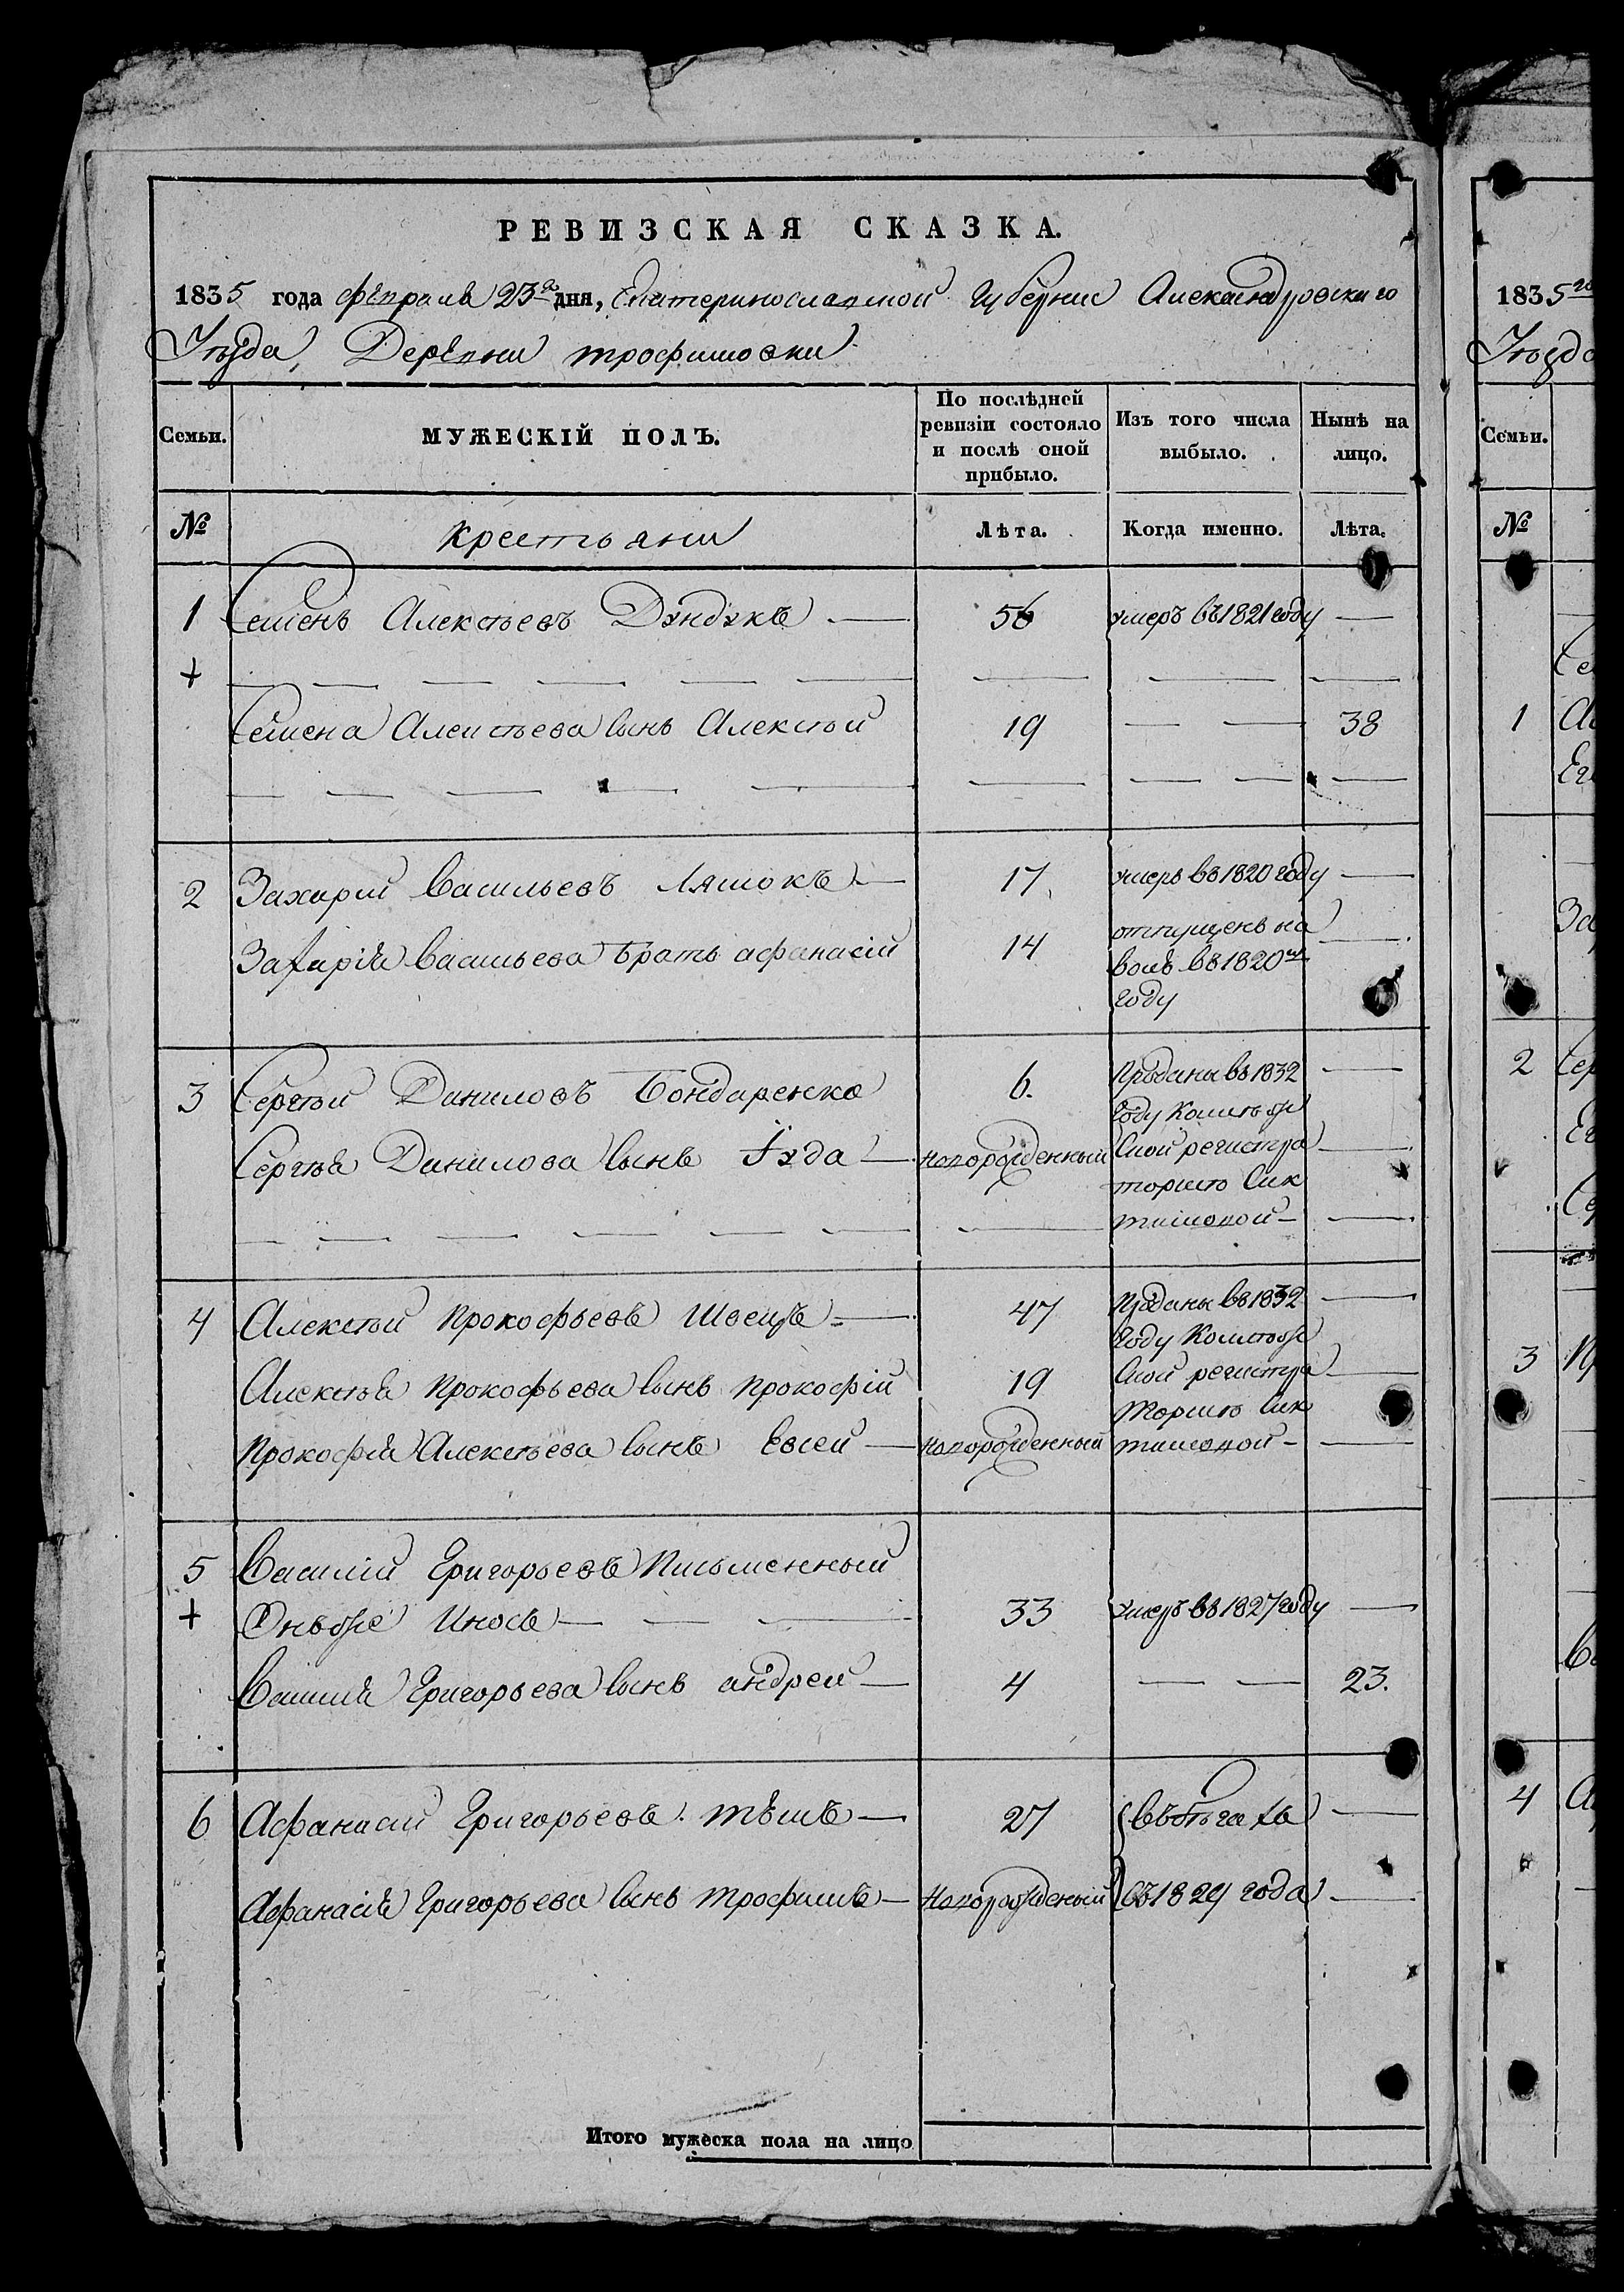 РЕВИЗСКАЯ СКАЗКА.
1835 года февраля 23го дня, Екатеринославской Губернии Александровскаго
Уѣзда, Деревни трофимовки
Семьи. МУЖЕСКІЙ ПОЛЪ. По послѣдней ревизіи состояло и послѣ оной прибыло. Изъ того числа выбыло. Нынѣ на лицо.
№ крестьяни Лѣта. Когда именно. Лѣта.
1 Семенъ Алексѣевъ Дундукъ — 56 умеръ въ 1821 году —
+
Семена Алексѣева сынъ Алексѣй 19 — — 38
2 Захарій Васильевъ Ляшокъ — 17 умеръ въ 1820 году —
Захарія Васильева братъ афанасій 14 отпущенъ на —
волю въ 1820м
году
3 Сергѣй Даниловъ Бондаренко 6. Проданы въ 1832 —
году Колежской
Сергѣя Данилова сынъ Іуда — новорожденный регистра —
торшѣ
4 Алексѣй Прокофьевъ Швецъ — 47 Проданы въ 1832 —
году Колежской
Алексѣя Прокофьева сынъ Прокофій 19 регистра —
торшѣ
Прокофія Алексѣева сынъ Евсей — новорожденный —
5 Василій Григорьевъ Письменный
+ Онъ же Иносъ — — — 33 умеръ въ 1827 году —
Василія Григорьева сынъ андрей — 4 — — 23.
6 Афанасій Григорьевъ тѣшъ — 27 въ бѣгахъ —
Афанасія Григорьева сынъ трофимъ — новорожденый съ 1829 года —
Итого мужеска пола на лицо
1835го
Уѣзд
Семьи.
№
1
2 Сер
3 Пр
4